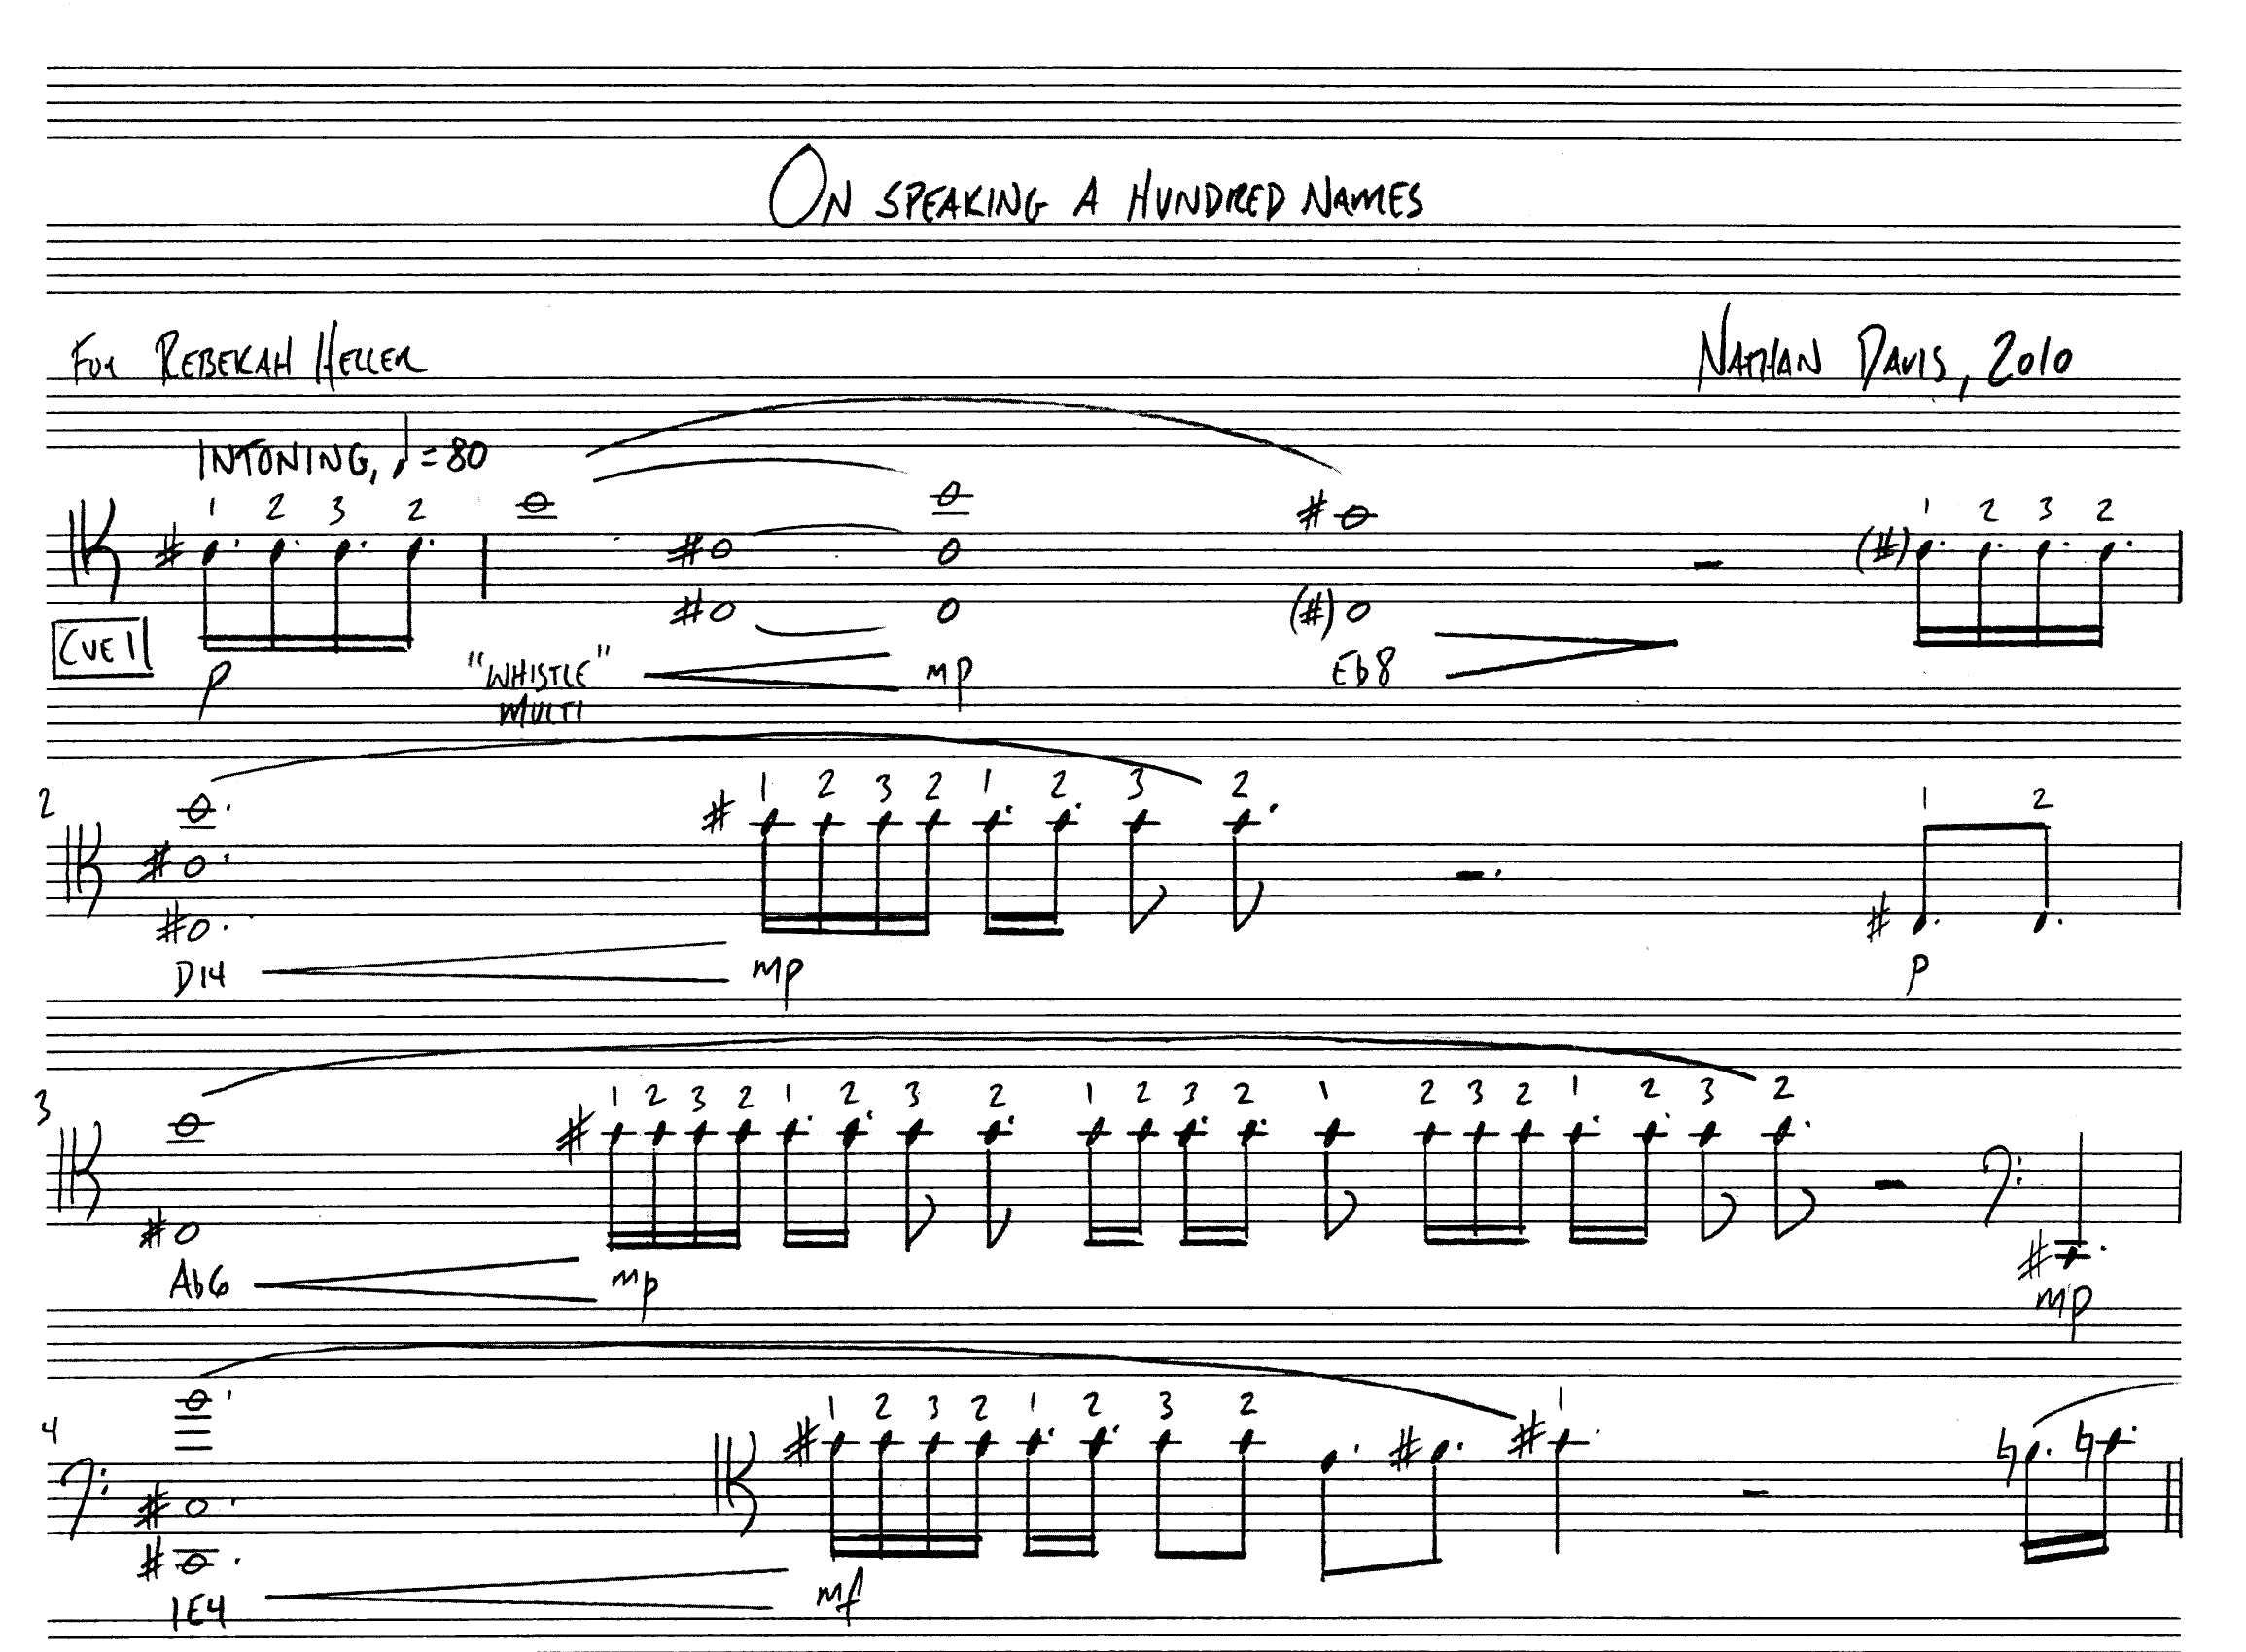 ON SPEAKING A HUNDRED NAMES
FOR REBEKAH HELLER
NATHAN DAVIS, 2010
INTONING, ♩=80
1 2 3 2
1 2 3 2
CUE 1
p
"WHISTLE"
MULTI
mp
Eb8
2
1 2 3 2 1 2 3 2
1 2
D14
mp
p
3
1 2 3 2 1 2 3 2 1 2 3 2 1 2 3 2 1 2 3 2
Ab6
mp
mp
4
1 2 3 2 1 2 3 2 1
1E4
mf